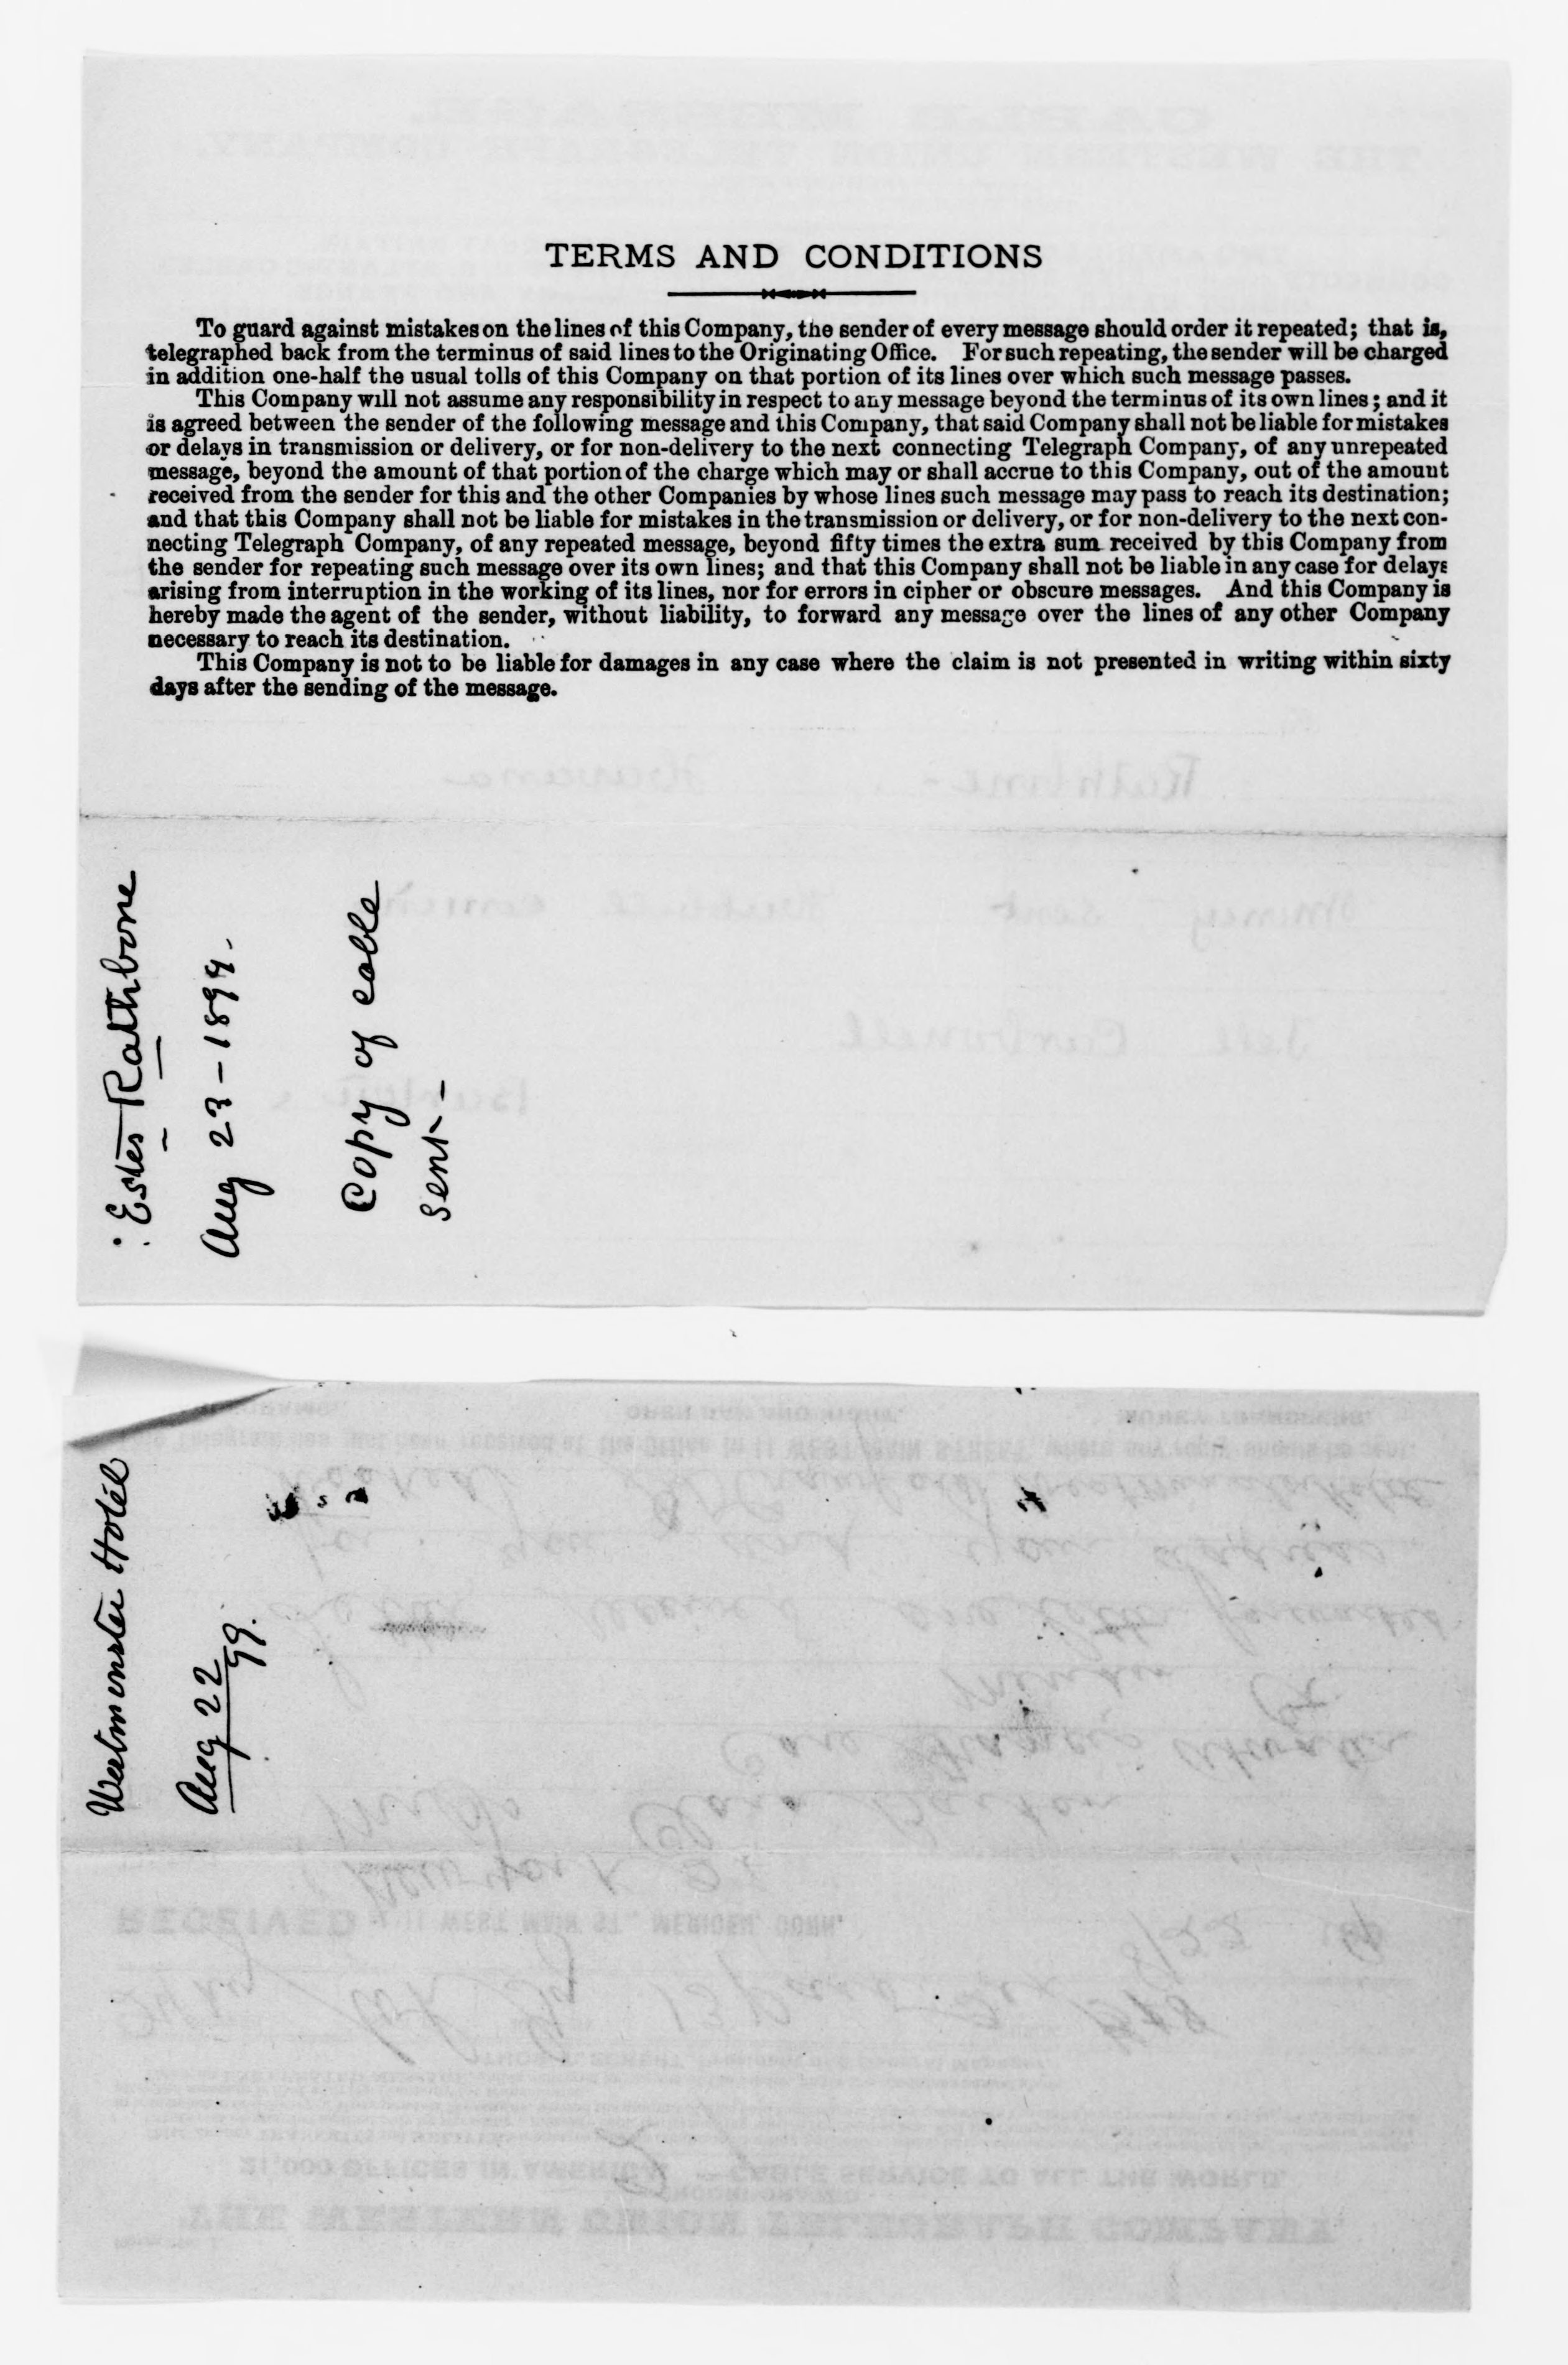 TERMS AND CONDITIONS
To guard against mistakes on the lines of this Company, the sender of every message should order it repeated; that is,
telegraphed back from the terminus of said lines to the Originating Office. For such repeating, the sender will be charged
in addition one-half the usual tolls of this Company on that portion of its lines over which such message passes.
This Company will not assume any responsibility in respect to any message beyond the terminus of its own lines; and it
is agreed between the sender of the following message and this Company, that said Company shall not be liable for mistakes
or delays in transmission or delivery, or for non-delivery to the next connecting Telegraph Company, of any unrepeated
message, beyond the amount of that portion of the charge which may or shall accrue to this Company, out of the amount
received from the sender for this and the other Companies by whose lines such message may pass to reach its destination;
and that this Company shall not be liable for mistakes in the transmission or delivery, or for non-delivery to the next con-
necting Telegraph Company, of any repeated message, beyond fifty times the extra sum received by this Company from
the sender for repeating such message over its own lines; and that this Company shall not be liable in any case for delays
arising from interruption in the working of its lines, nor for errors in cipher or obscure messages. And this Company is
hereby made the agent of the sender, without liability, to forward any message over the lines of any other Company
necessary to reach its destination.
This Company is not to be liable for damages in any case where the claim is not presented in writing within sixty
days after the sending of the message.
Estes Rathbone
Aug 23-1899.
Copy of cable
sent-
Westminster Hotel
Aug 22
99.